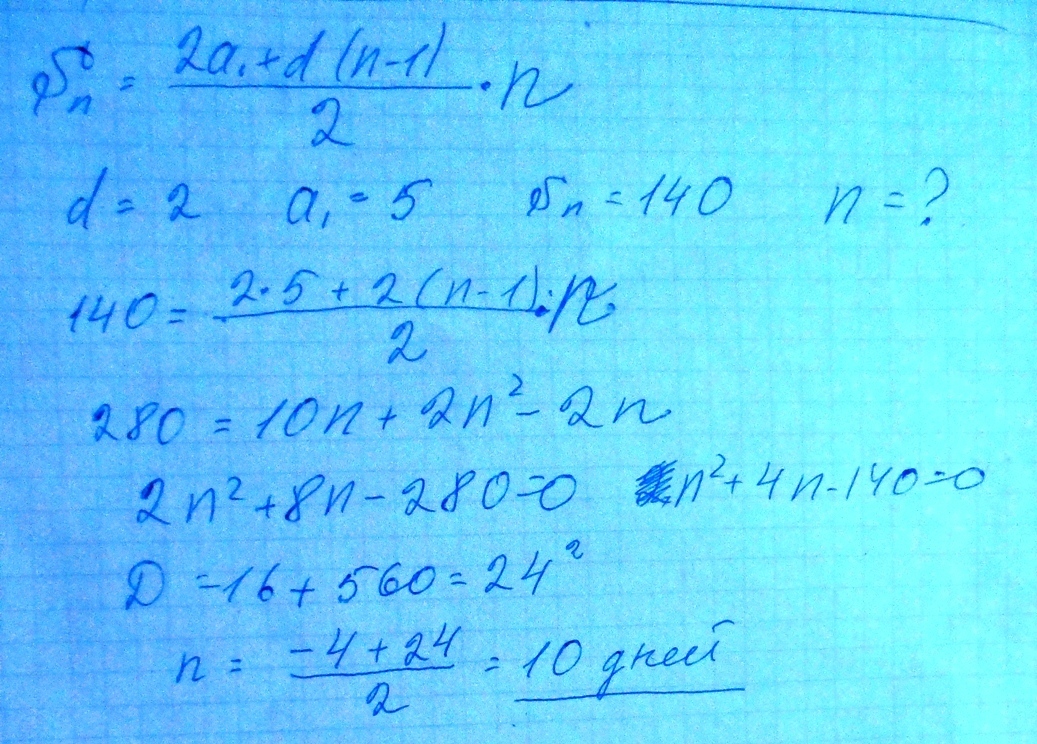 Sₙ = (2a₁+d(n-1))/2 · n
d = 2 a₁ = 5 Sₙ = 140 n = ?
140 = (2·5 + 2(n-1))/2 · n
280 = 10n + 2n² - 2n
2n² + 8n - 280 = 0 n² + 4n - 140 = 0
D = 16 + 560 = 24²
n = (-4 + 24)/2 = 10 дней